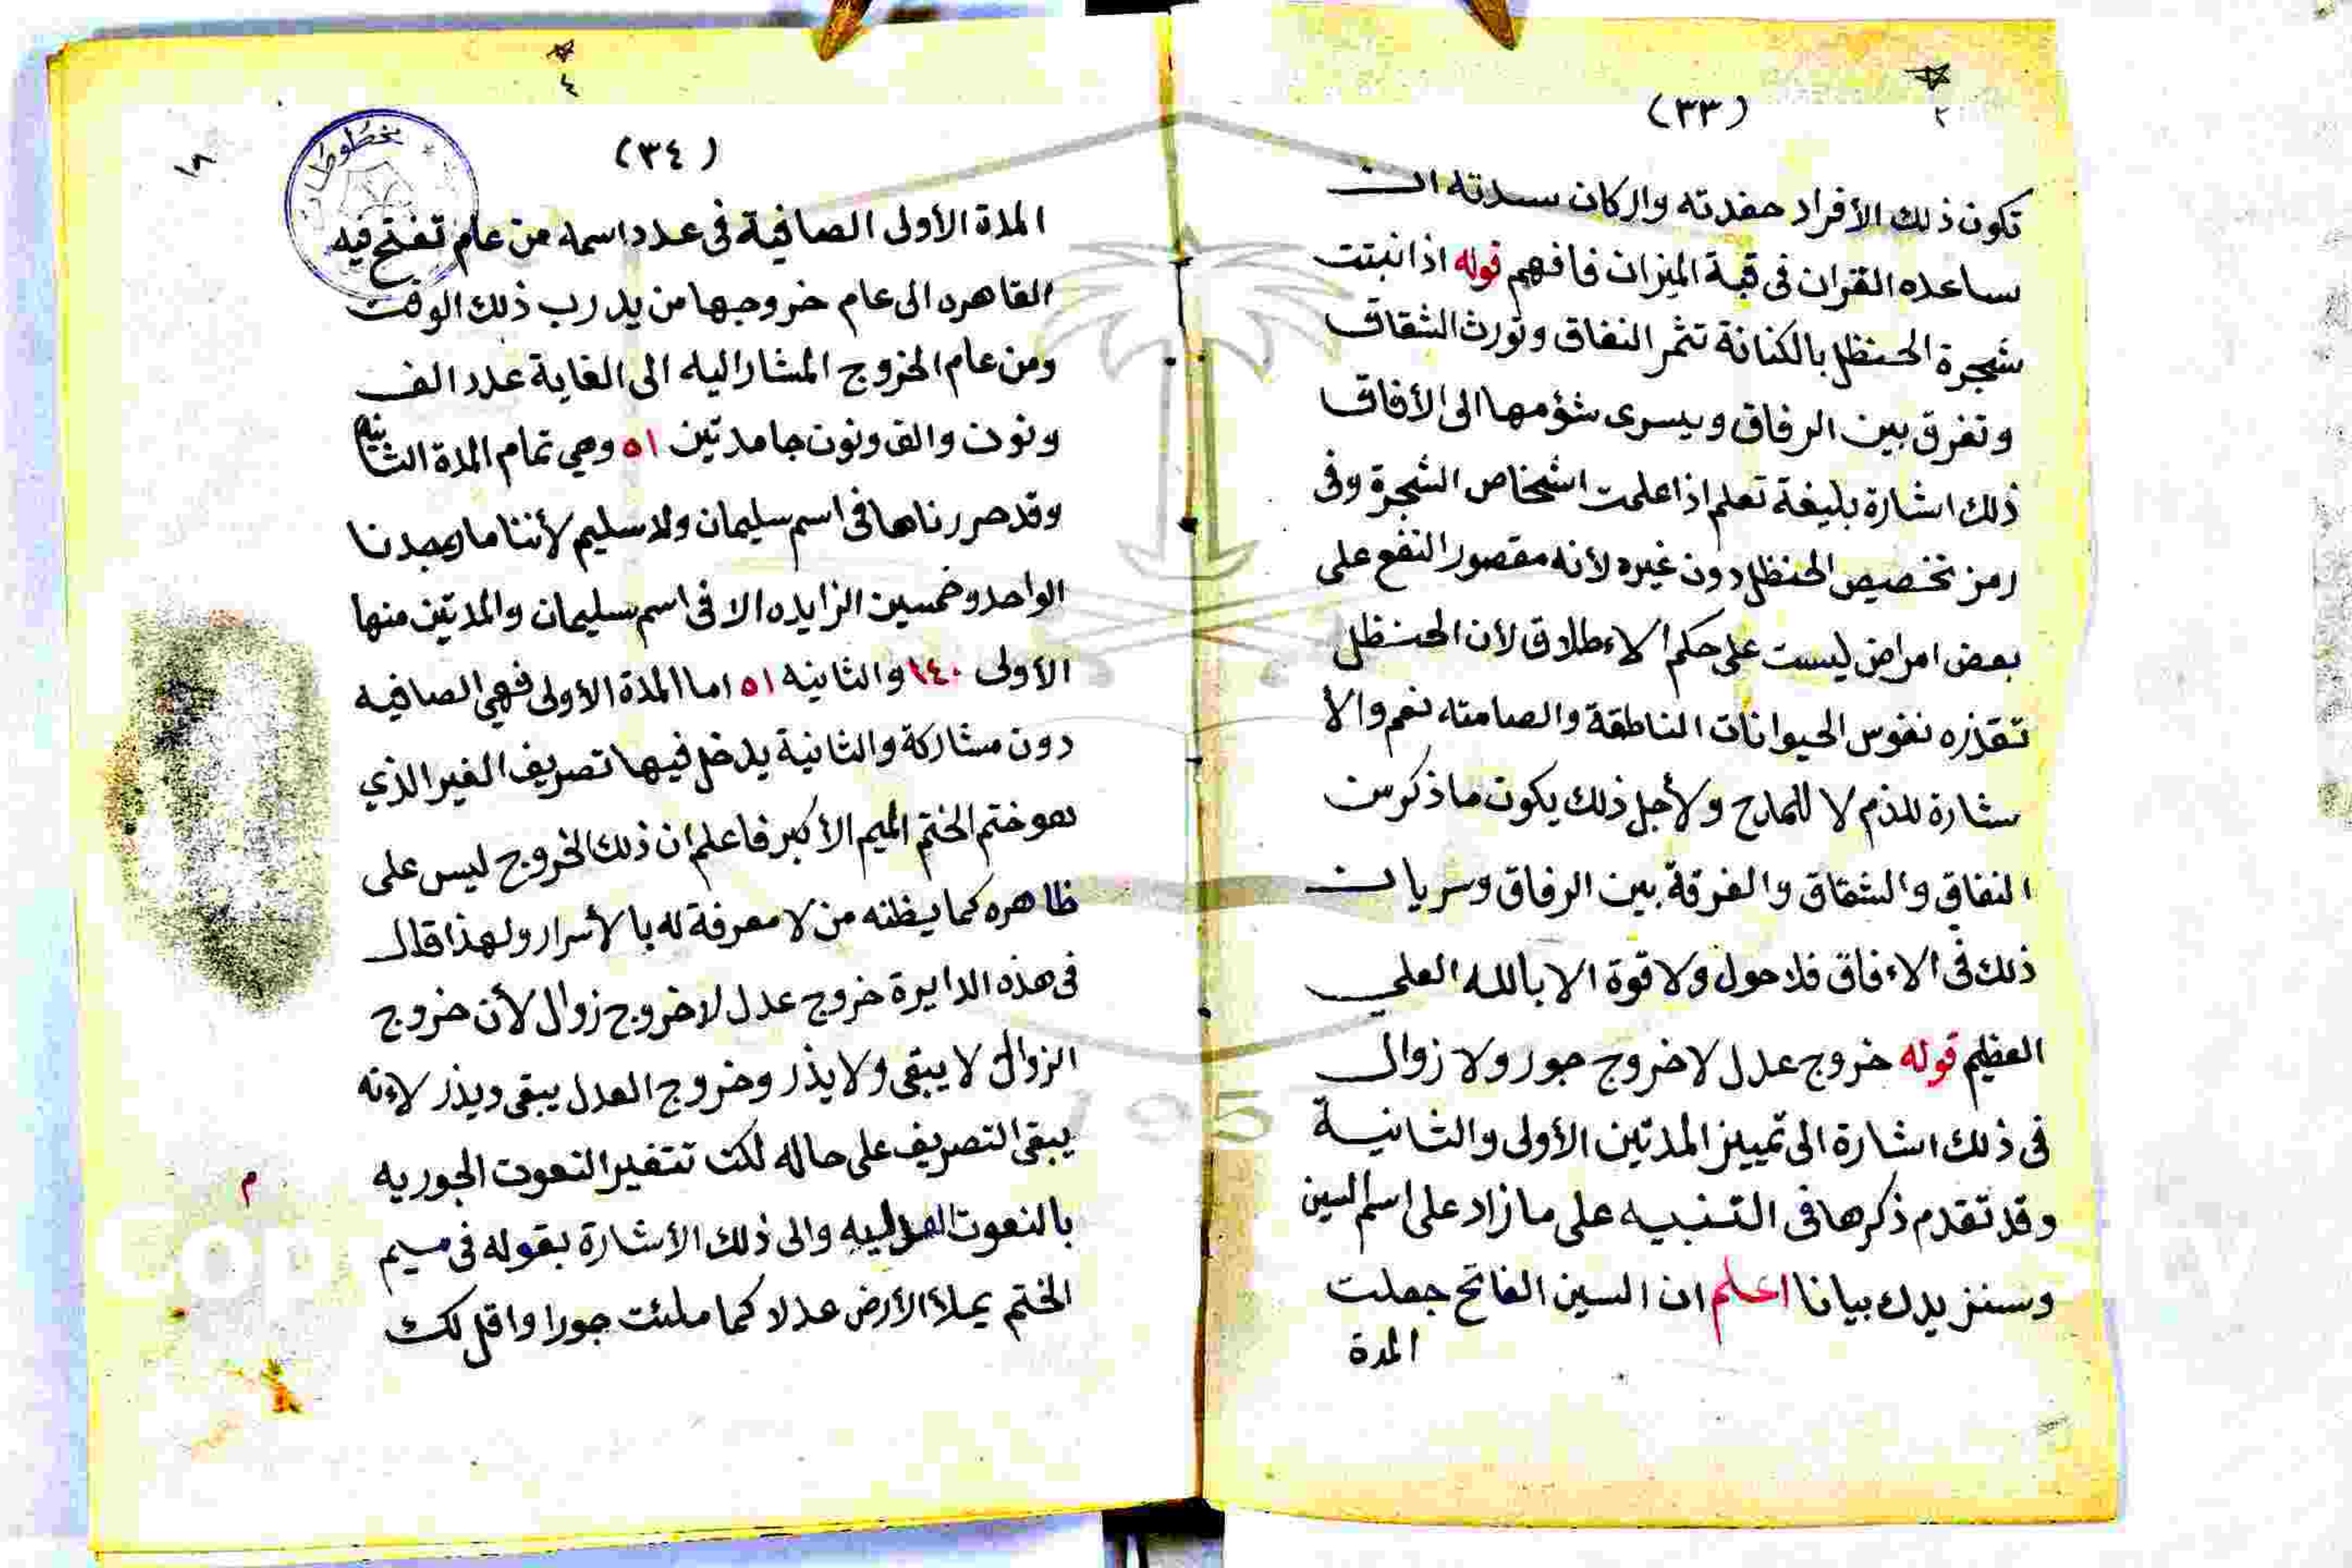 (٣٣)
تكون ذلك الأفراد حفدته واركان سدته ان
ساعده القران فى قبة الميزان فافهم قوله اذا نبتت
شجرة الحنظل بالكنانة تثمر النفاق وتورث الشقاق
وتفرق بين الرفاق ويسرى شؤمها الى الأفاق
ذلك اشارة بليغة تعلم اذا علمت اشخاص الشجرة وفى
رمز تخصيص الحنظل دون غيره لأنه مقصور النفع على
بعض امراض ليست على حكم الاءطلاق لأن الحنظل
تقذره نفوس الحيوانات الناطقة والصامته نعم والا
شارة للذم لا للمادح ولأجل ذلك يكون ما ذكر من
النفاق والشقاق والفرقة بين الرفاق وسريان
ذلك فى الاءفاق فلا حول ولا قوة الا بالله العلي
العظيم قوله خروج عدل لا خروج جور ولا زوال
فى ذلك اشارة الى تمييز المدتين الأولى والثانية
وقد تقدم ذكرها فى التنبيه على ما زاد على اسم السين
وسنزيدك بيانا اعلم ان السين الفاتح جعلت
المدة
(٣٤)
المدة الأولى الصافية فى عدد اسمه من عام تفتح فيه
القاهره الى عام خروجها من يد رب ذلك الوقت
ومن عام الخروج المشار اليه الى الغاية عدد الف
ونون والف ونون جامدتين ٥١ وهي تمام المدة الثانيه
وقد حررناها فى اسم سليمان ولا سليم لأننا ما وجدنا
الواحد وخمسين الزايده الا فى اسم سليمان والمدتين منها
الأولى ١٤٠ والثانيه ٥١ اما المدة الأولى فهي الصافيه
دون مشاركة والثانية يدخل فيها تصريف الغير الذي
هو ختم الختم الميم الأكبر فاعلم ان ذلك الخروج ليس على
ظاهره كما يظنه من لا معرفة له بالأسرار ولهذا قال
فى هذه الدايرة خروج عدل لا خروج زوال لأن خروج
الزوال لا يبقى ولا يذر وخروج العدل يبقى ويذر لاءنه
يبقى التصريف على حاله لكن تتغير النعوت الجوريه
بالنعوت العدليه والى ذلك الأشارة بقوله فى ميم
الختم يملأ الأرض عدلا كما ملئت جورا واقل لك